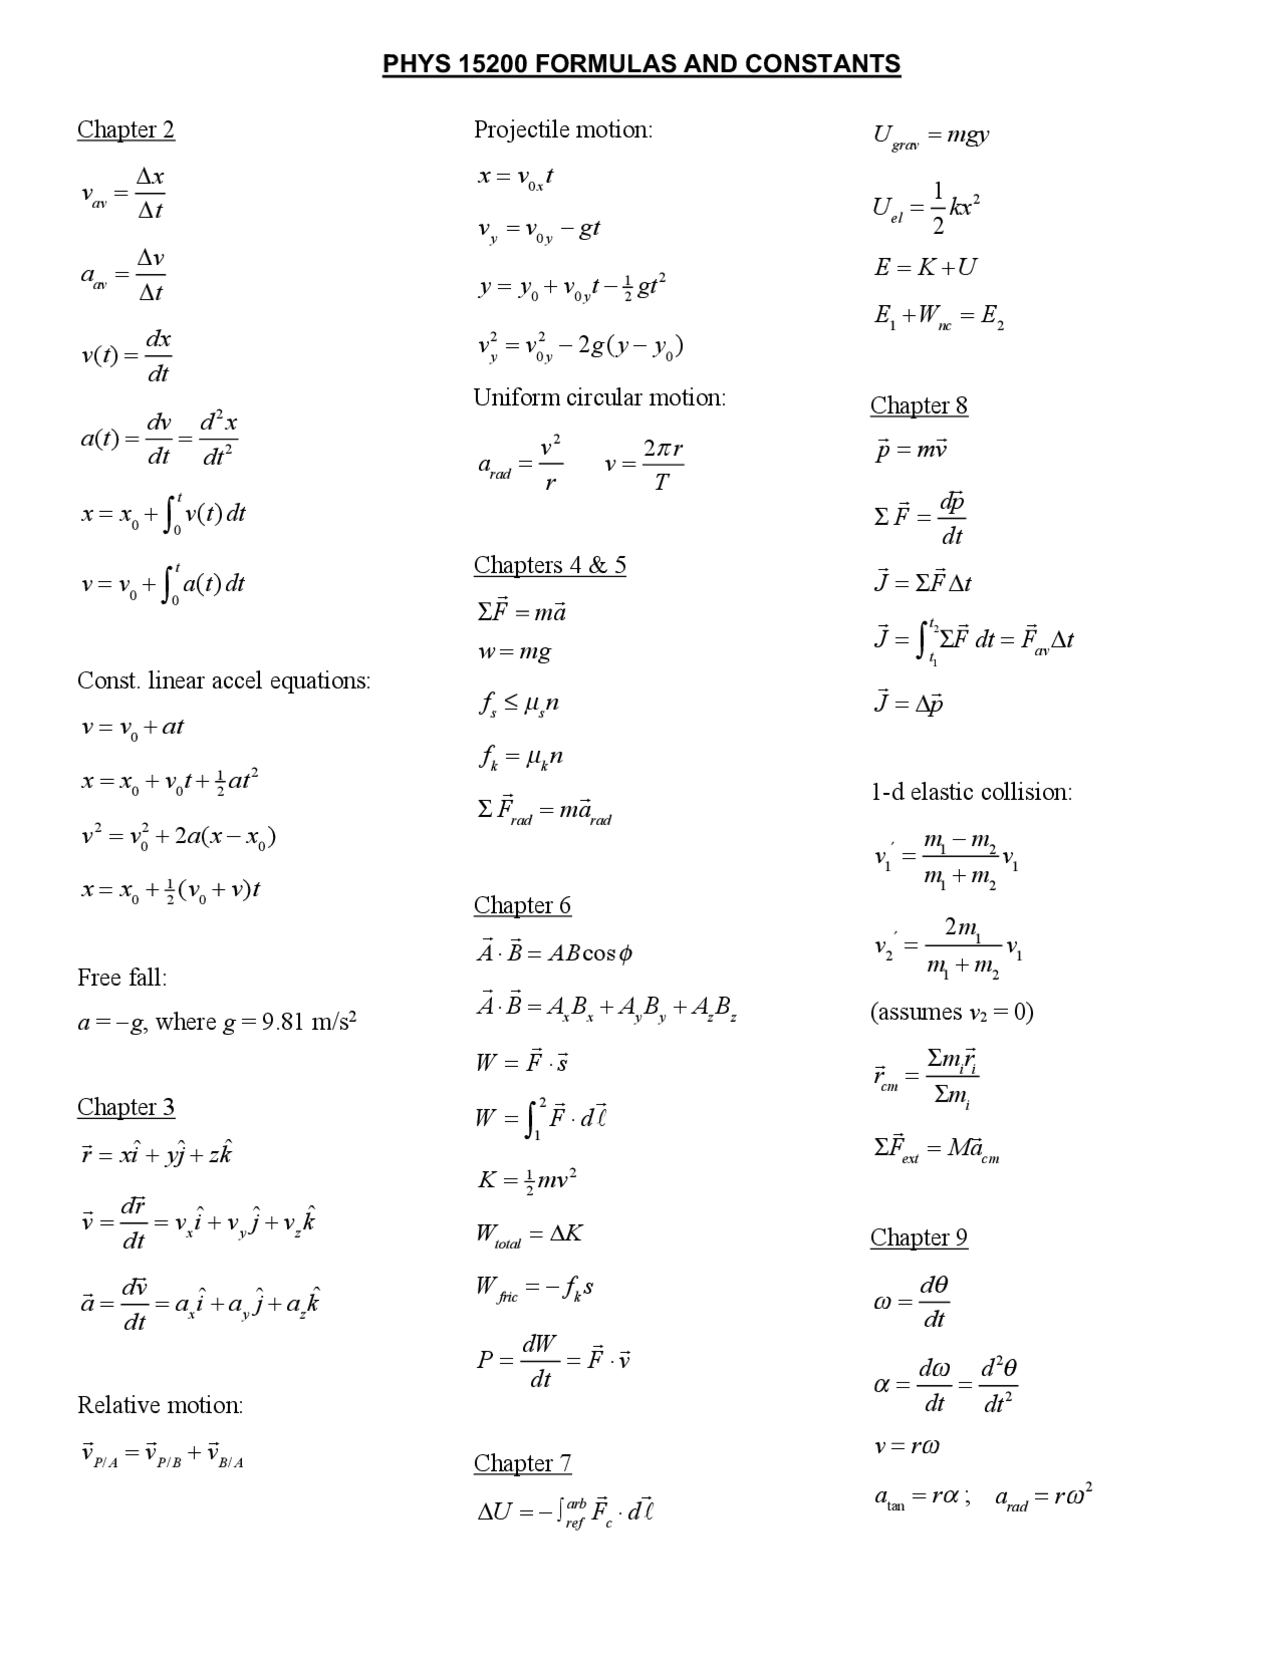 PHYS 15200 FORMULAS AND CONSTANTS
Chapter 2
v_av = Δx/Δt
a_av = Δv/Δt
v(t) = dx/dt
a(t) = dv/dt = d²x/dt²
x = x₀ + ∫₀ᵗ v(t) dt
v = v₀ + ∫₀ᵗ a(t) dt
Const. linear accel equations:
v = v₀ + at
x = x₀ + v₀t + ½at²
v² = v₀² + 2a(x − x₀)
x = x₀ + ½(v₀ + v)t
Free fall:
a = −g, where g = 9.81 m/s²
Chapter 3
r⃗ = xî + yĵ + zk̂
v⃗ = dr⃗/dt = v_x î + v_y ĵ + v_z k̂
a⃗ = dv⃗/dt = a_x î + a_y ĵ + a_z k̂
Relative motion:
v⃗_P/A = v⃗_P/B + v⃗_B/A
Projectile motion:
x = v₀ₓt
v_y = v_0y − gt
y = y₀ + v_0y t − ½gt²
v_y² = v_0y² − 2g(y − y₀)
Uniform circular motion:
a_rad = v²/r v = 2πr/T
Chapters 4 & 5
ΣF⃗ = ma⃗
w = mg
f_s ≤ μ_s n
f_k = μ_k n
ΣF⃗_rad = ma⃗_rad
Chapter 6
A⃗ · B⃗ = AB cos ϕ
A⃗ · B⃗ = A_x B_x + A_y B_y + A_z B_z
W = F⃗ · s⃗
W = ∫₁² F⃗ · dℓ⃗
K = ½mv²
W_total = ΔK
W_fric = −f_k s
P = dW/dt = F⃗ · v⃗
Chapter 7
ΔU = −∫_ref^arb F⃗_c · dℓ⃗
U_grav = mgy
U_el = 1/2 kx²
E = K + U
E₁ + W_nc = E₂
Chapter 8
p⃗ = mv⃗
ΣF⃗ = dp⃗/dt
J⃗ = ΣF⃗Δt
J⃗ = ∫_t₁^t₂ ΣF⃗ dt = F⃗_av Δt
J⃗ = Δp⃗
1-d elastic collision:
v₁′ = (m₁ − m₂)/(m₁ + m₂) v₁
v₂′ = 2m₁/(m₁ + m₂) v₁
(assumes v₂ = 0)
r⃗_cm = Σm_i r⃗_i/Σm_i
ΣF⃗_ext = Ma⃗_cm
Chapter 9
ω = dθ/dt
α = dω/dt = d²θ/dt²
v = rω
a_tan = rα; a_rad = rω²